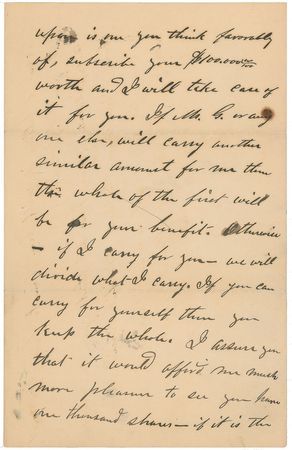 upon is one you think favorably
of, subscribe your $100.000 00/100
worth and I will take care of
it for you. If Mr. G. or any
one else, will carry another
similar amount for me then
the whole of the first will
be for your benefit. Otherwise
— if I carry for you — we will
divide what I carry. If you can
carry for yourself then you
keep the whole. I assure you
that it would afford me much
more pleasure to see you have
one thousand shares — if it is the